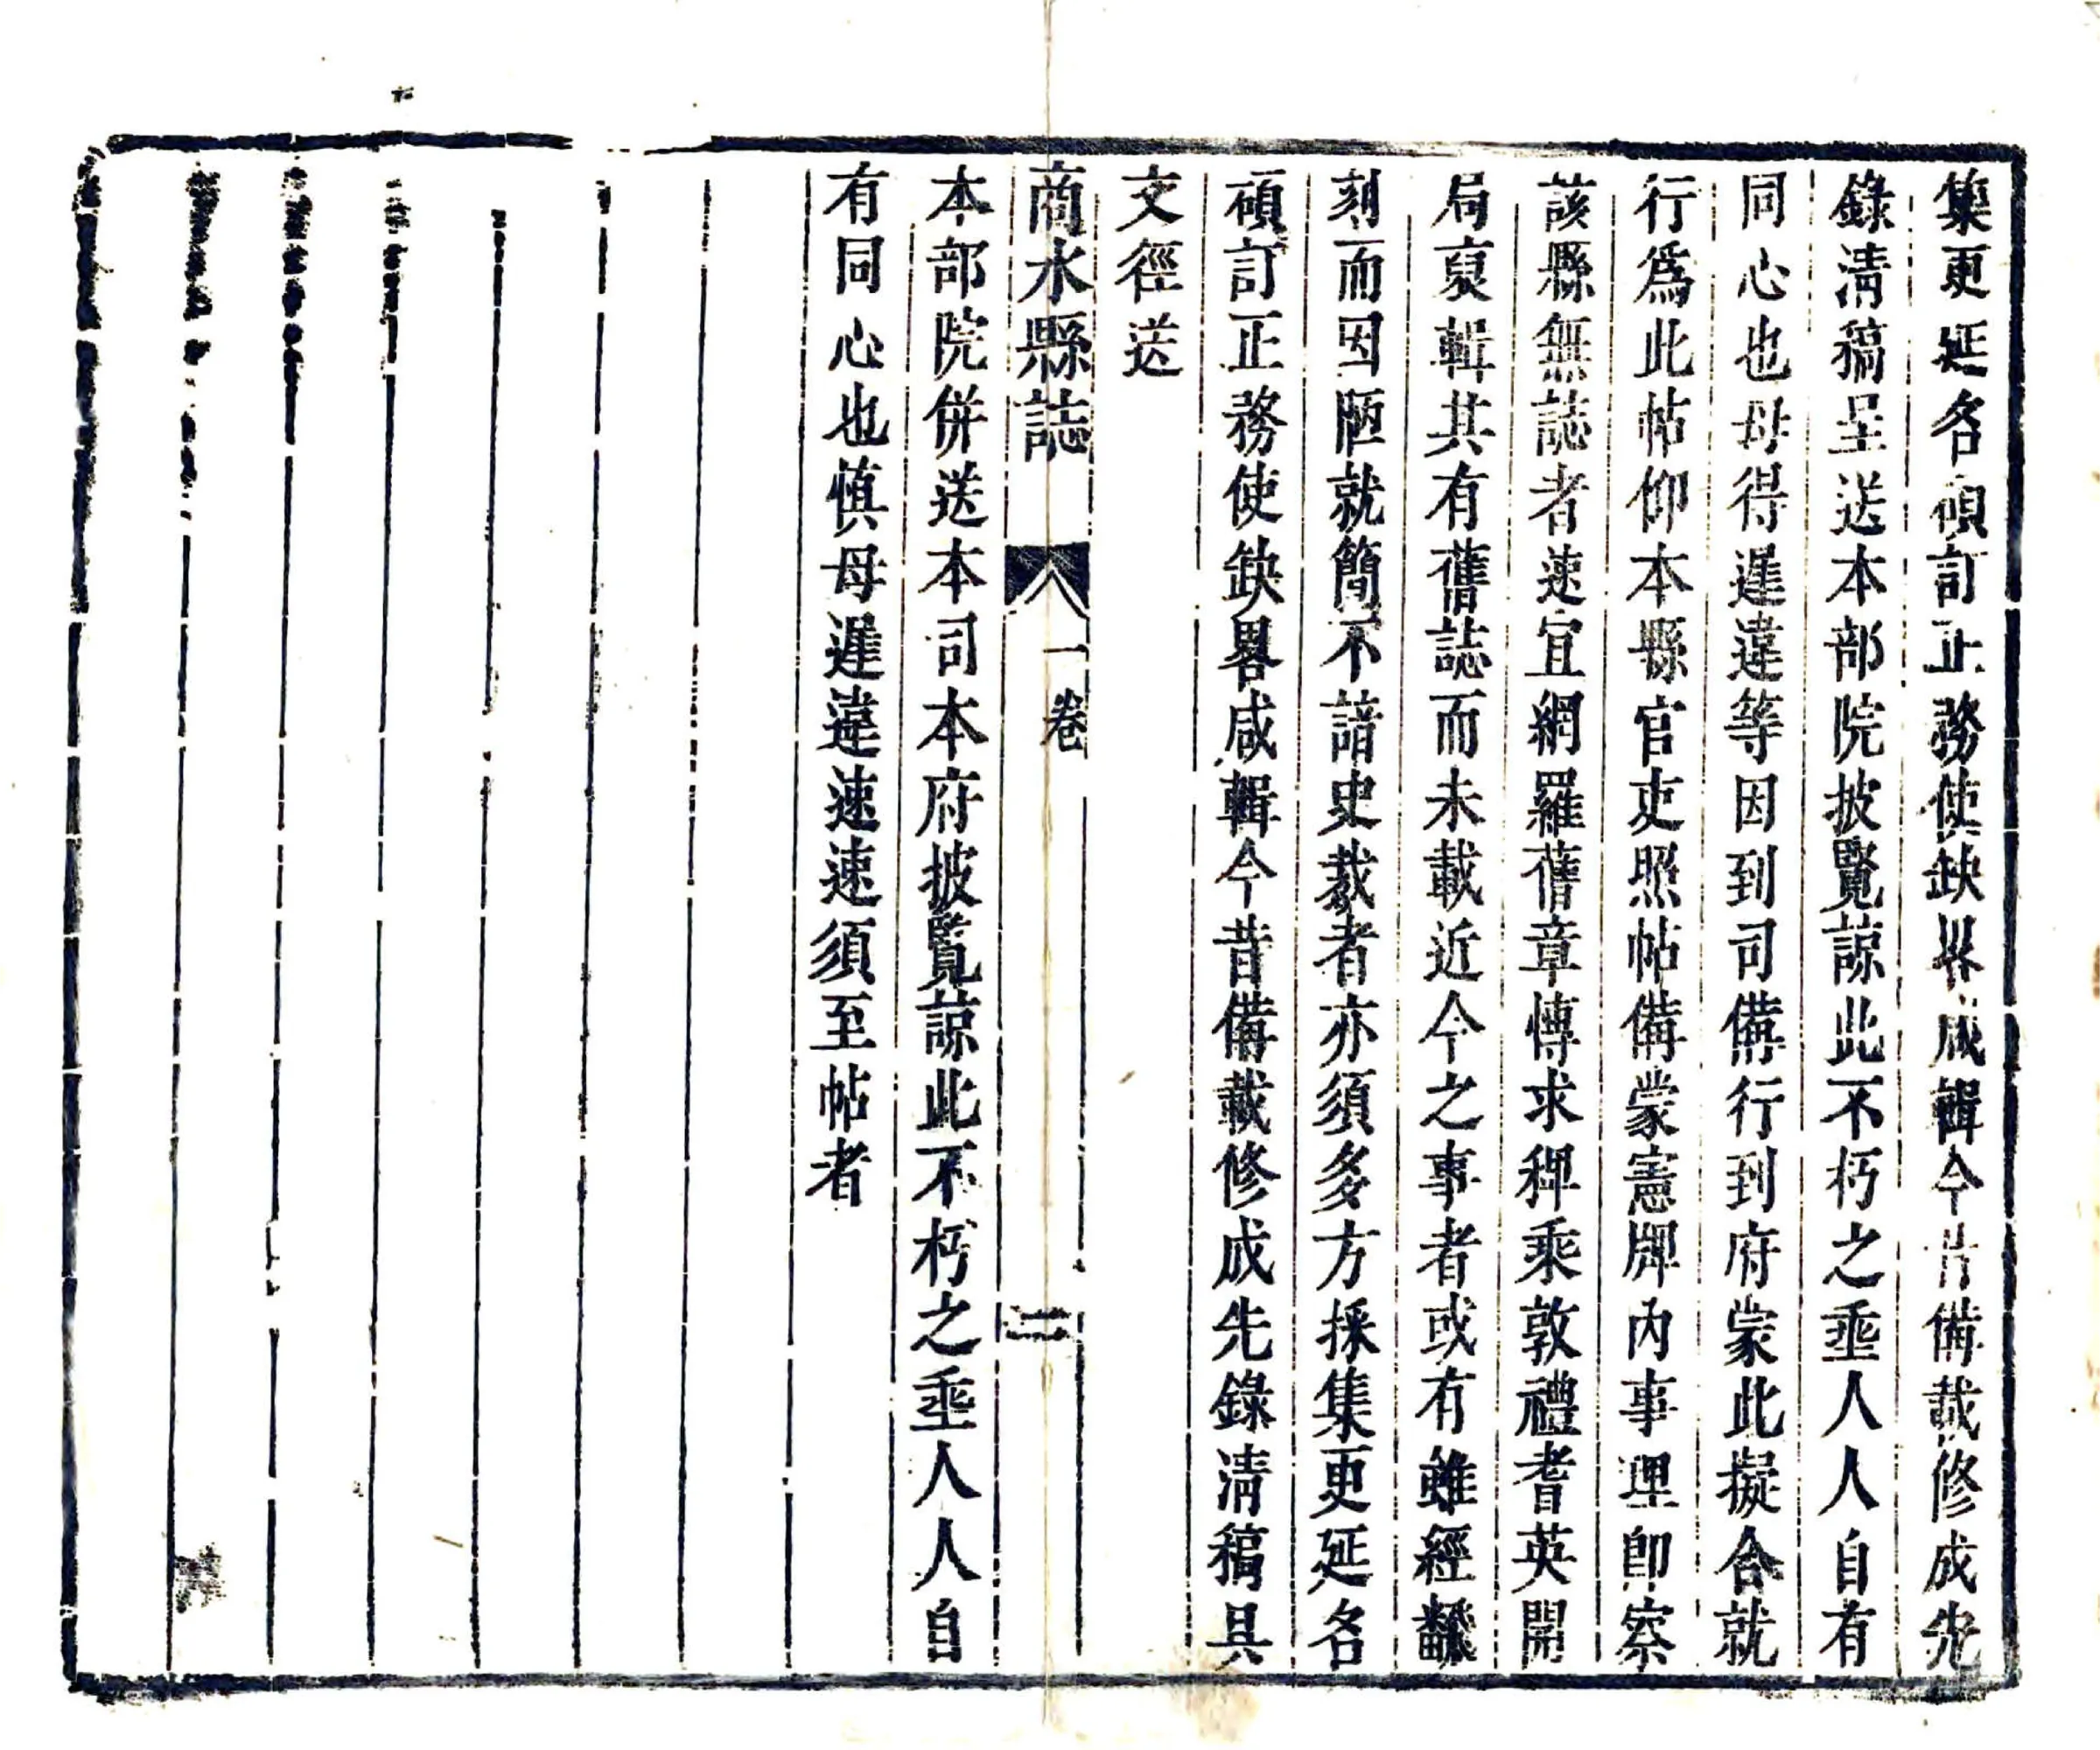 集更延名碩訂止務使缺畧咸輯今昔備載修成先
錄清稿呈送本部院披覽諒此不朽之埀人人自有
同心也毋得遲違等因到司備行到府蒙此擬合就
行爲此帖仰本縣官吏照帖備蒙憲牌內事理卽察
該縣無誌者速宜網羅舊章慱求稗乘敦禮耆英開
局裒輯其有舊誌而未載近今之事者或有雖經飜
刻而因陋就簡不諳史裁者亦須多方採集更延名
碩訂正務使缺畧咸輯今昔備載修成先錄清稿具
文徑送
商水縣誌 一卷 二
本部院併送本司本府披覽諒此不朽之埀人人自
有同心也慎毋遲違速速須至帖者